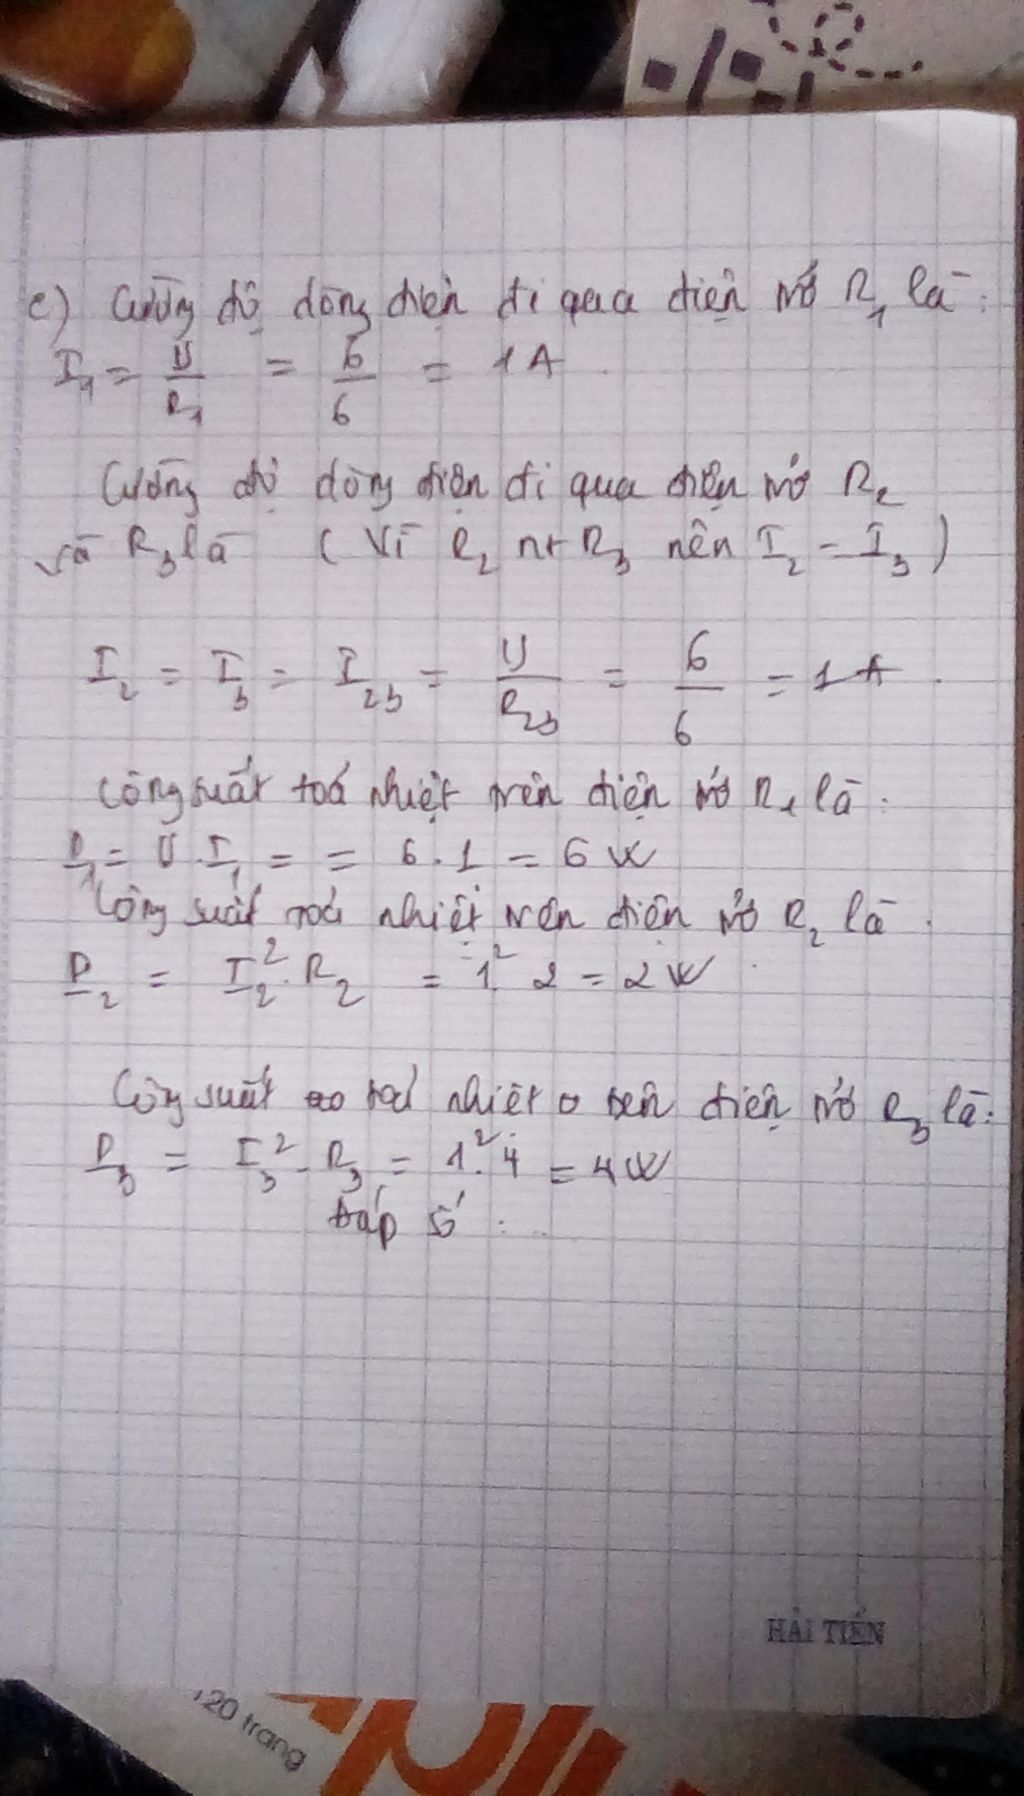 c) Cường độ dòng điện đi qua điện trở R₁ là:
I₁ = U/R₁ = 6/6 = 1A.
Cường độ dòng điện đi qua điện trở R₂
và R₃ là (Vì R₂ nt R₃ nên I₂ = I₃)
I₂ = I₃ = I₂₃ = U/R₂₃ = 6/6 = 1A.
Công suất toả nhiệt trên điện trở R₁ là:
P₁ = U.I₁ = = 6.1 = 6W
Công suất toả nhiệt trên điện trở R₂ là.
P₂ = I₂².R₂ = 1².2 = 2W.
Công suất toả nhiệt trên điện trở R₃ là:
P₃ = I₃².R₃ = 1².4 = 4W
Đáp số: ...
HẢI TIẾN
120 trang